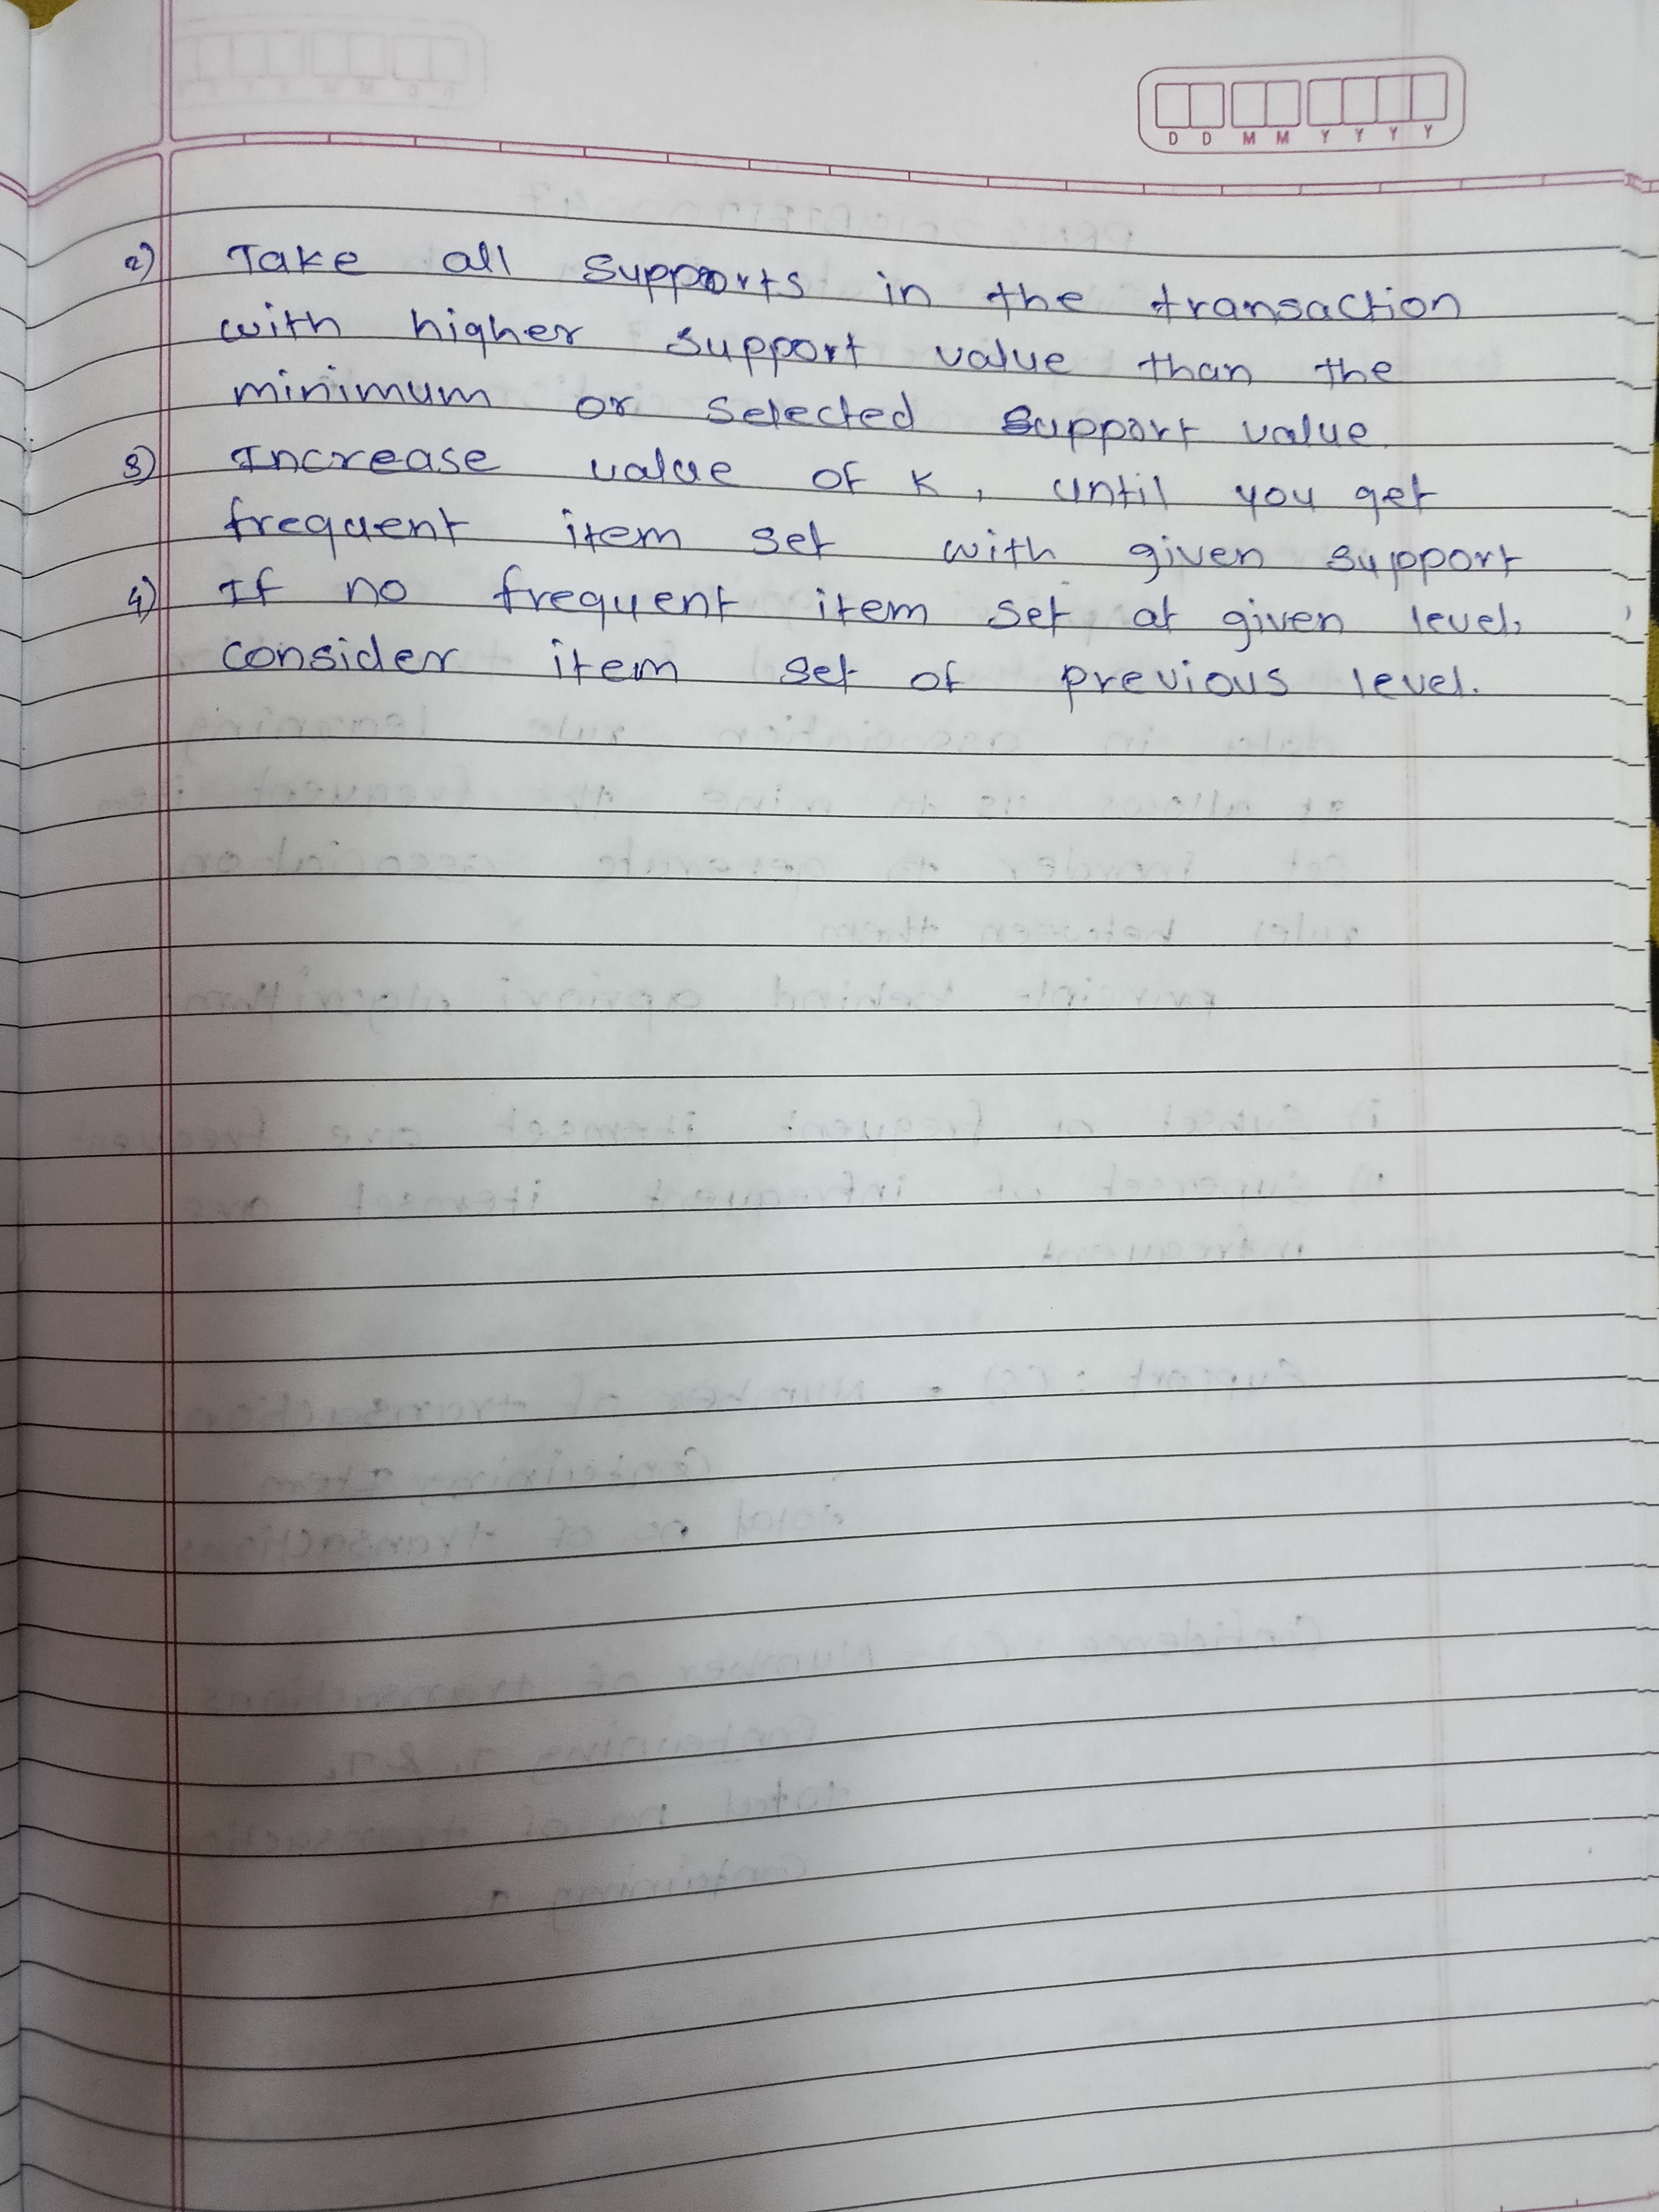 D D M M Y Y Y Y
2) Take all supports in the transaction
with higher support value than the
minimum or selected support value.
3) Increase value of K, until you get
frequent item set with given support
4) If no frequent item set at given level,
consider item set of previous level.